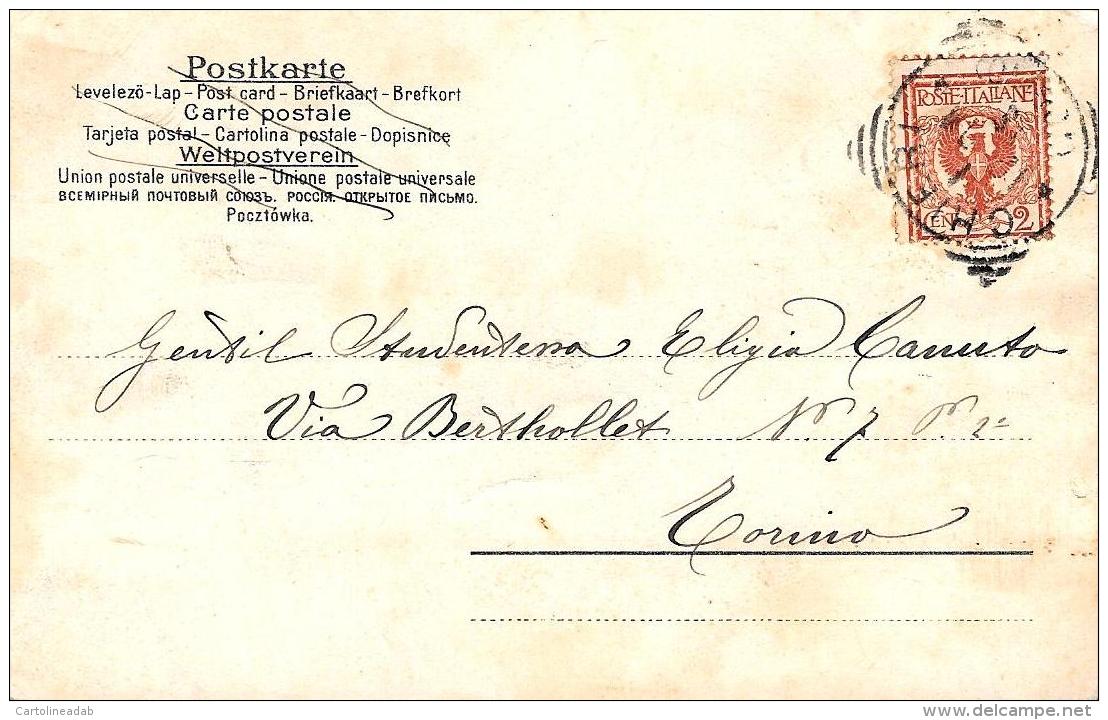 Postkarte
Levelező-Lap - Post card - Briefkaart - Brefkort
Carte postale
Tarjeta postal - Cartolina postale - Dopisnice
Weltpostverein
Union postale universelle - Unione postale universale
ВСЕМІРНЫЙ ПОЧТОВЫЙ СОЮЗЪ. РОССІЯ. ОТКРЫТОЕ ПИСЬМО.
Pocztówka.
POSTE·ITALIANE
CEN 2
CHIERI
Gentil Studentessa Eligia Canuto
Via Berthollet N. 7 P. 2º
Torino
Cartolineadab
delcampe.net